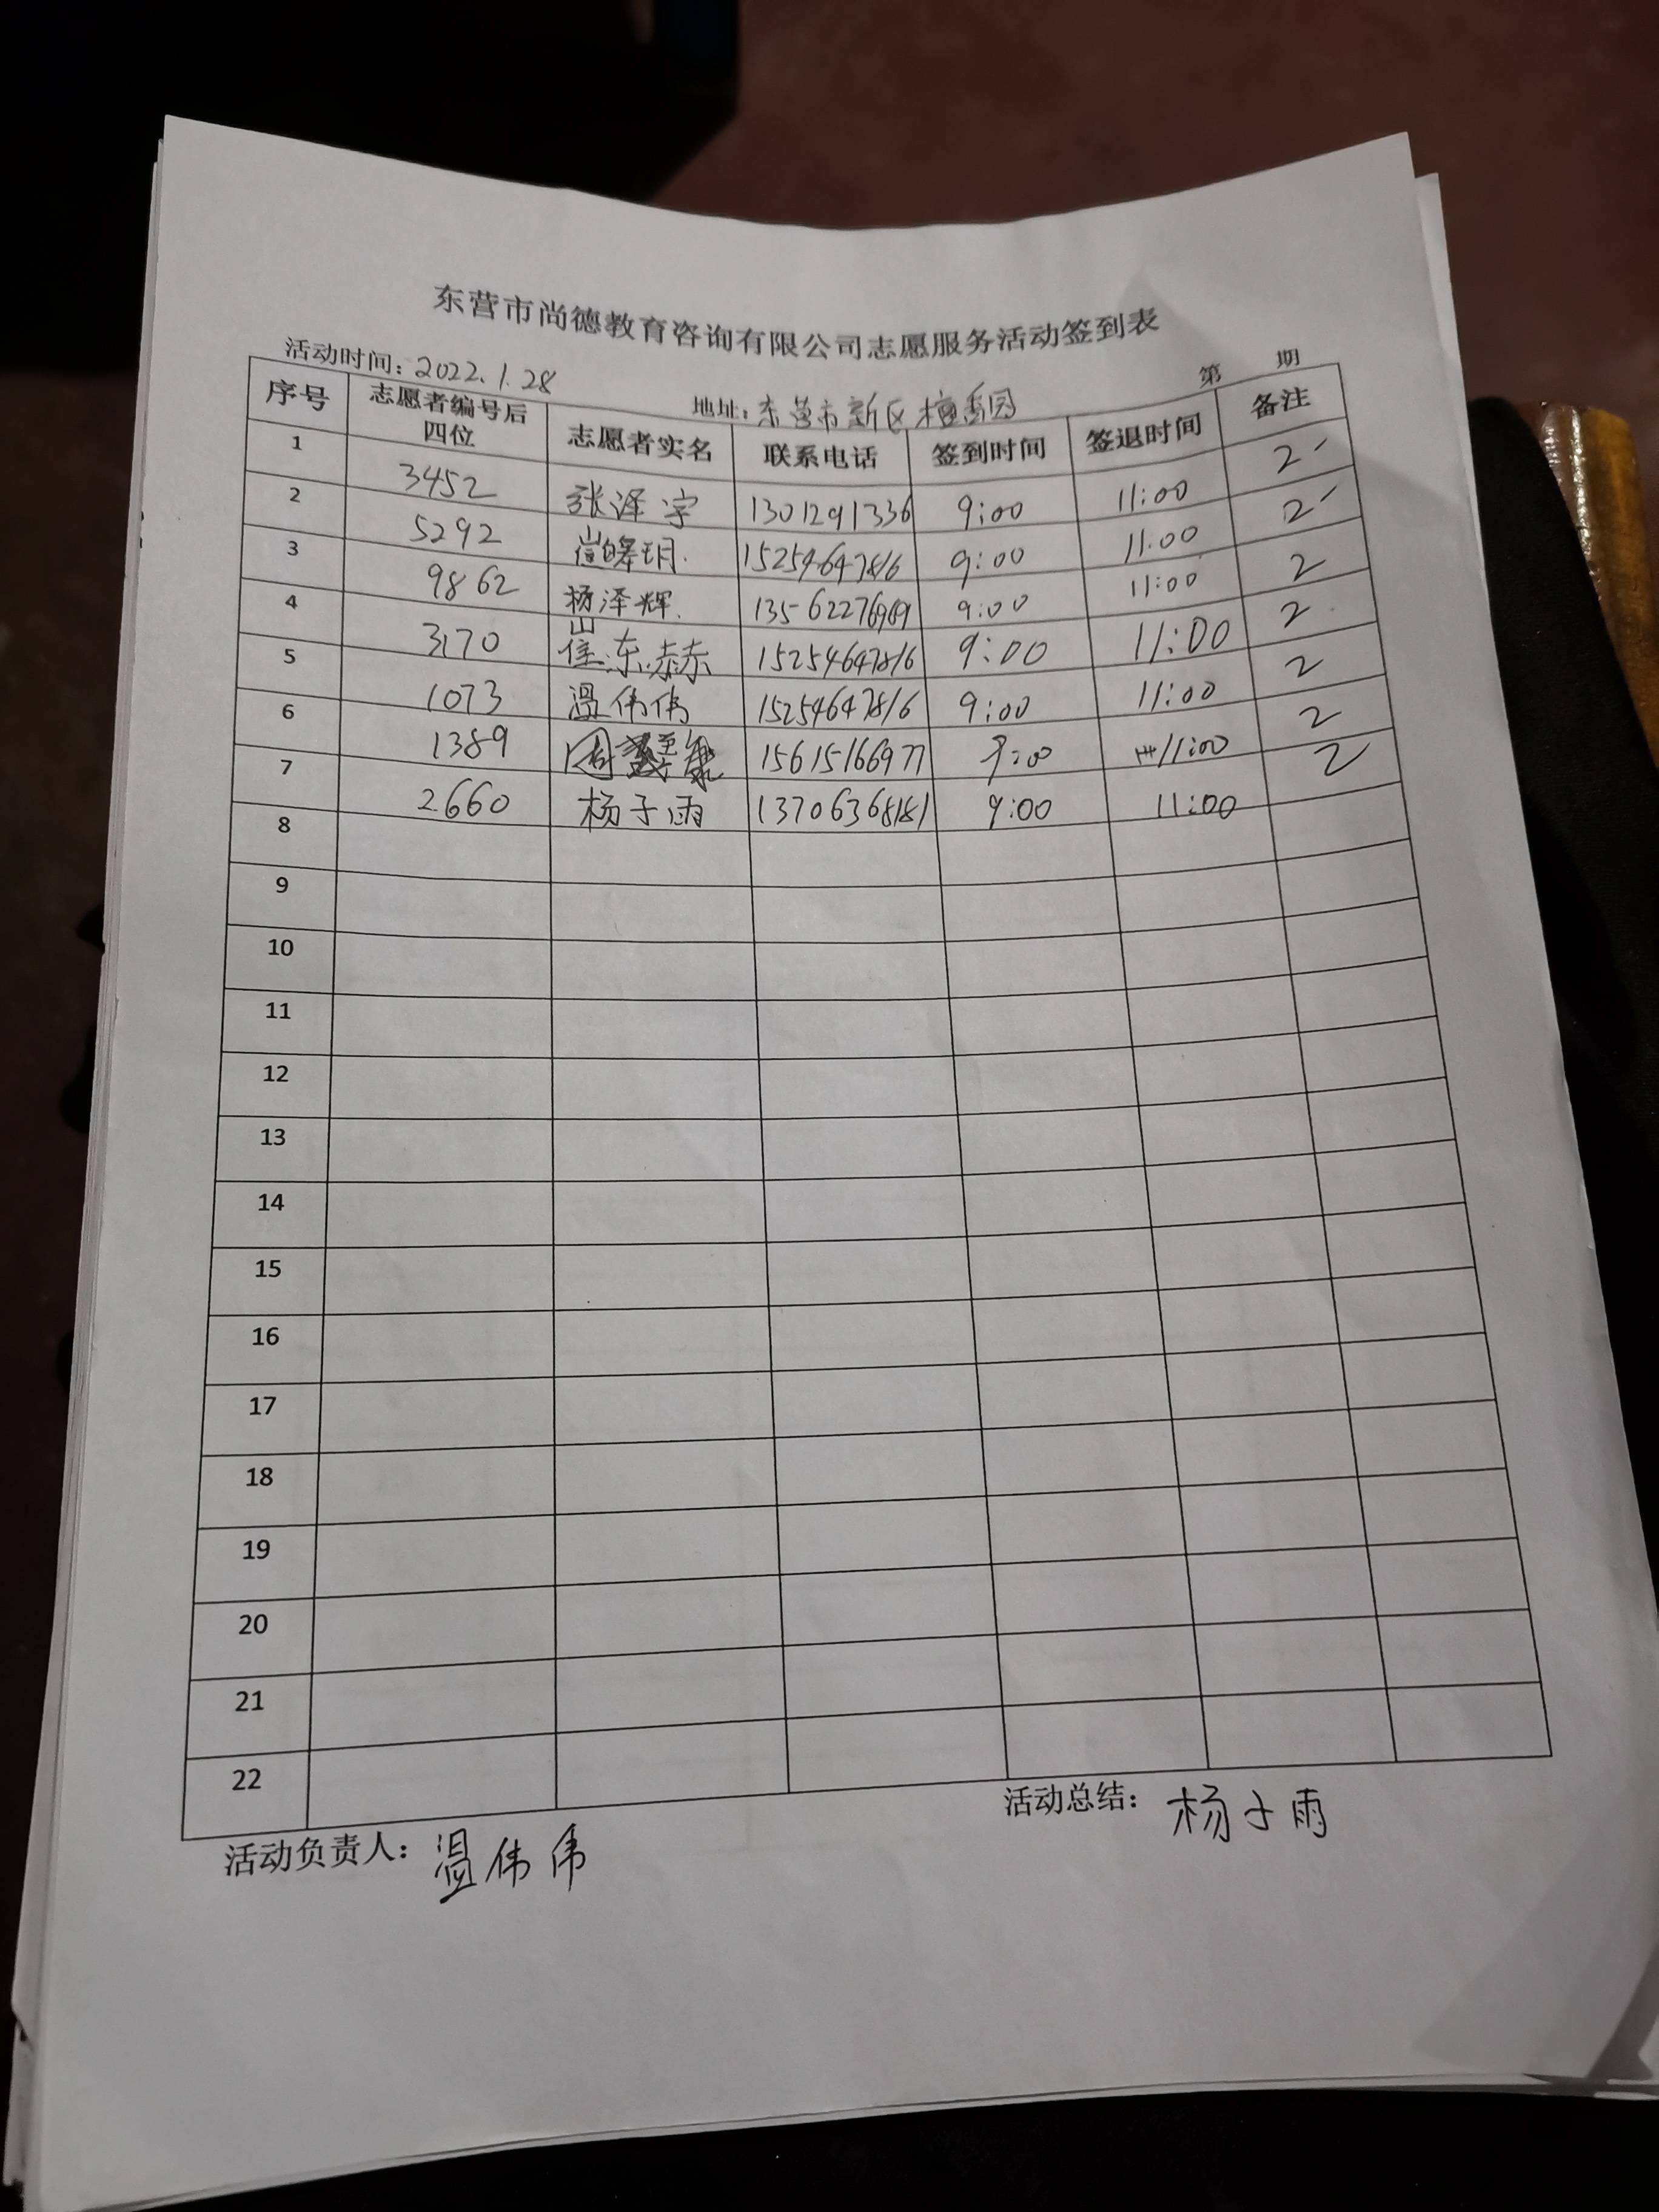 东营市尚德教育咨询有限公司志愿服务活动签到表
活动时间：2022.1.28 地址：东营市新区檀香园 第 期
序号 志愿者编号后四位 志愿者实名 联系电话 签到时间 签退时间 备注
1 3452 张泽宇 1301291336 9:00 11:00 2
2 5292 崔皞玥. 15254647816 9:00 11:00 2
3 9862 杨泽辉. 13562276969 9:00 11:00 2
4 3170 崔东赫 15254647816 9:00 11:00 2
5 1073 温伟伟 15254647816 9:00 11:00 2
6 1389 周 15615166977 9:00 11:00 2
7 2660 杨子雨 13706368181 9:00 11:00 2
8
9
10
11
12
13
14
15
16
17
18
19
20
21
22
活动负责人：温伟伟 活动总结：杨子雨